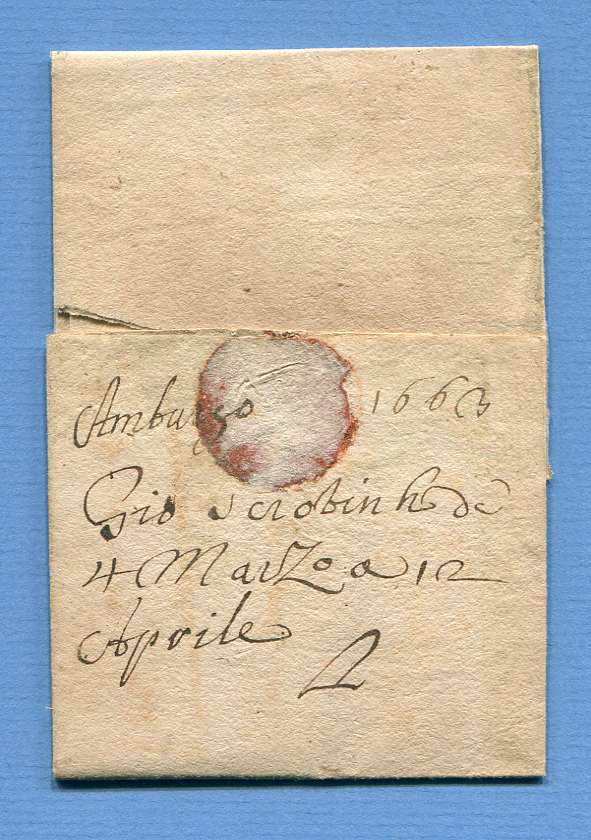 Amburgo 1663
Gio Scrotinh de
4 Marzo a 12
Aprile